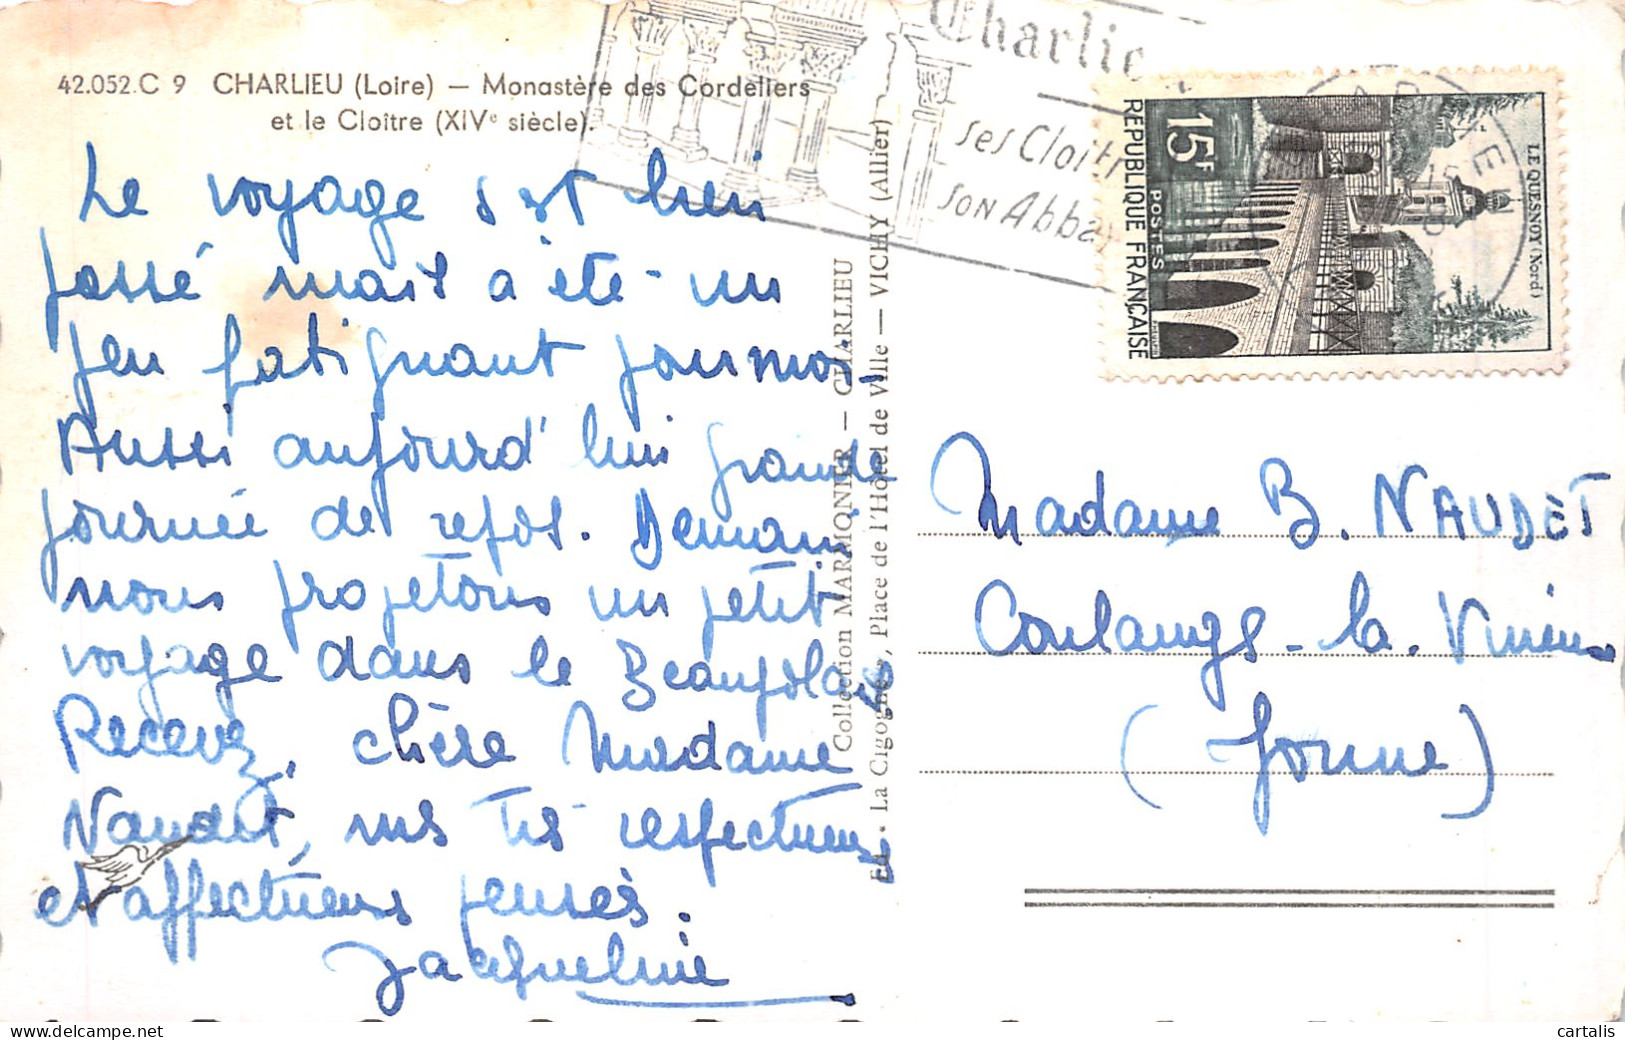 42.052.C 9 CHARLIEU (Loire) — Monastère des Cordeliers
et le Cloître (XIVe siècle).
Le voyage s'est bien
passé mais a été un
peu fatiguant pour nos.
Aussi aujourd'hui grande
journée de repos. Demain
nous projetons un petit
voyage dans le Beaujolais
Recevez, chère Madame
Naudet, nos très respectueuses
et affectueuses pensées.
Jacqueline
Collection MARMONIER — CHARLIEU
La Cigogne, Place de l'Hôtel de Ville — VICHY (Allier)
Charlie
ses Cloit
SON Abba
15F
POSTES
REPUBLIQUE FRANÇAISE
LE QUESNOY (Nord)
Madame B. NAUDET
Coulanges-la-Vineuse
(Yonne)
cartalis